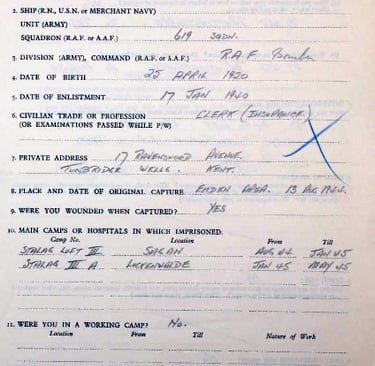 2. SHIP (R.N., U.S.N. or MERCHANT NAVY)
UNIT (ARMY)
SQUADRON (R.A.F. or A.A.F.) 619 SQDN.
3. DIVISION (ARMY), COMMAND (R.A.F. or A.A.F.) R.A.F. Bomber
4. DATE OF BIRTH 25 APRIL 1920
5. DATE OF ENLISTMENT 17 JAN 1940
6. CIVILIAN TRADE OR PROFESSION CLERK (INSURANCE)
(OR EXAMINATIONS PASSED WHILE P/W)
7. PRIVATE ADDRESS 17 RAVENSWOOD AVENUE.
TUNBRIDGE WELLS. KENT.
8. PLACE AND DATE OF ORIGINAL CAPTURE. EMDEN AREA. 13 AUG 1944.
9. WERE YOU WOUNDED WHEN CAPTURED? YES
10. MAIN CAMPS OR HOSPITALS IN WHICH IMPRISONED.
Camp No. Location From Till
STALAG LUFT III SAGAN AUG 44 JAN 45
STALAG III A LUCKENWALDE JAN 45 MAY 45
11. WERE YOU IN A WORKING CAMP? No.
Location From Till Nature of Work